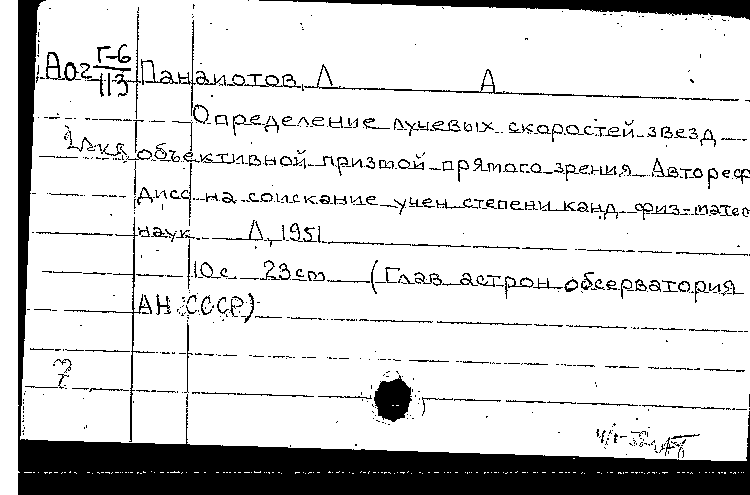 Аог Г-6/113 Панаиотов, Л А
Определение лучевых скоростей звезд
2 экз объективной призмой прямого зрения Автореф
дисс на соискание учен степени канд физ-матем
наук Л, 1951
10с 23cm (Глав астрон обсерватория
АН СССР)
7